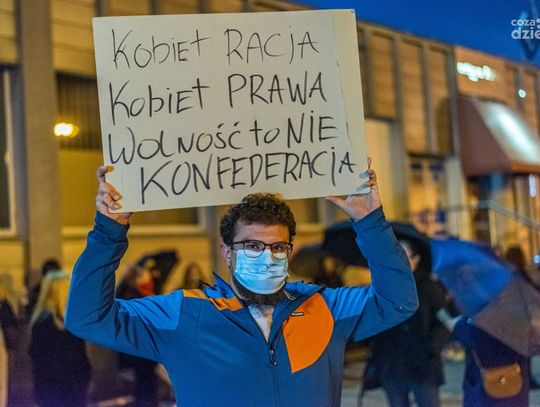 KOBIET RACJA
KOBIET PRAWA
WOLNOŚĆ TO NIE
KONFEDERACJA